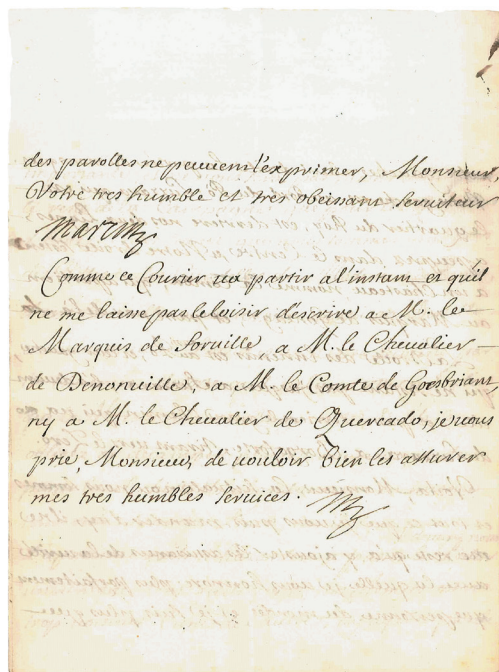 des parolles ne peuuent l'exprimer, Monsieur,
Votre tres humble et tres obeissant seruiteur
Marcin
Comme ce Courier ua partir a l'instant et qu'il
ne me laisse pas le loisir d'escrire a M. le
Marquis de Soruille a M. le Cheualier
de Denonuille, a M. le Comte de Goesbriant
ny a M. le Cheualier de Quercado, je uous
prie, Monsieur, de uouloir bien les assurer
mes tres humbles seruices.